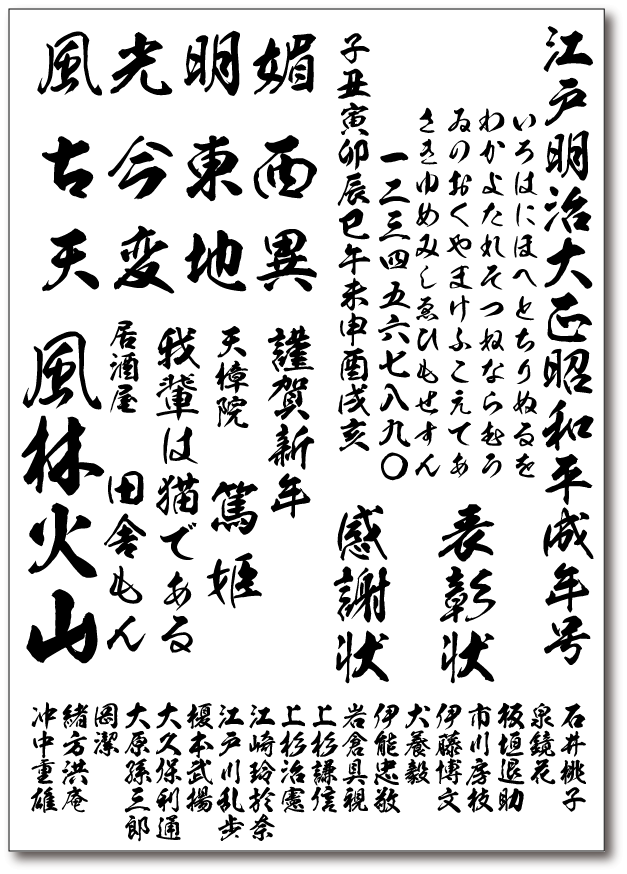 江戸明治大正昭和平成年号
いろはにほへとちりぬるを
わかよたれそつねならむう
ゐのおくやまけふこえてあ
さきゆめみしゑひもせすん
一二三四五六七八九〇
子丑寅卯辰巳午未申酉戌亥
表彰状
感謝状
風光明媚
古今東西
天変地異
謹賀新年
天樟院 篤姫
我輩は猫である
居酒屋 田舎もん
風林火山
石井桃子
泉鏡花
板垣退助
市川房枝
伊藤博文
犬養毅
伊能忠敬
岩倉具視
上杉謙信
上杉治憲
江崎玲於奈
江戸川乱歩
榎本武揚
大久保利通
大原孫三郎
岡潔
緒方洪庵
冲中重雄